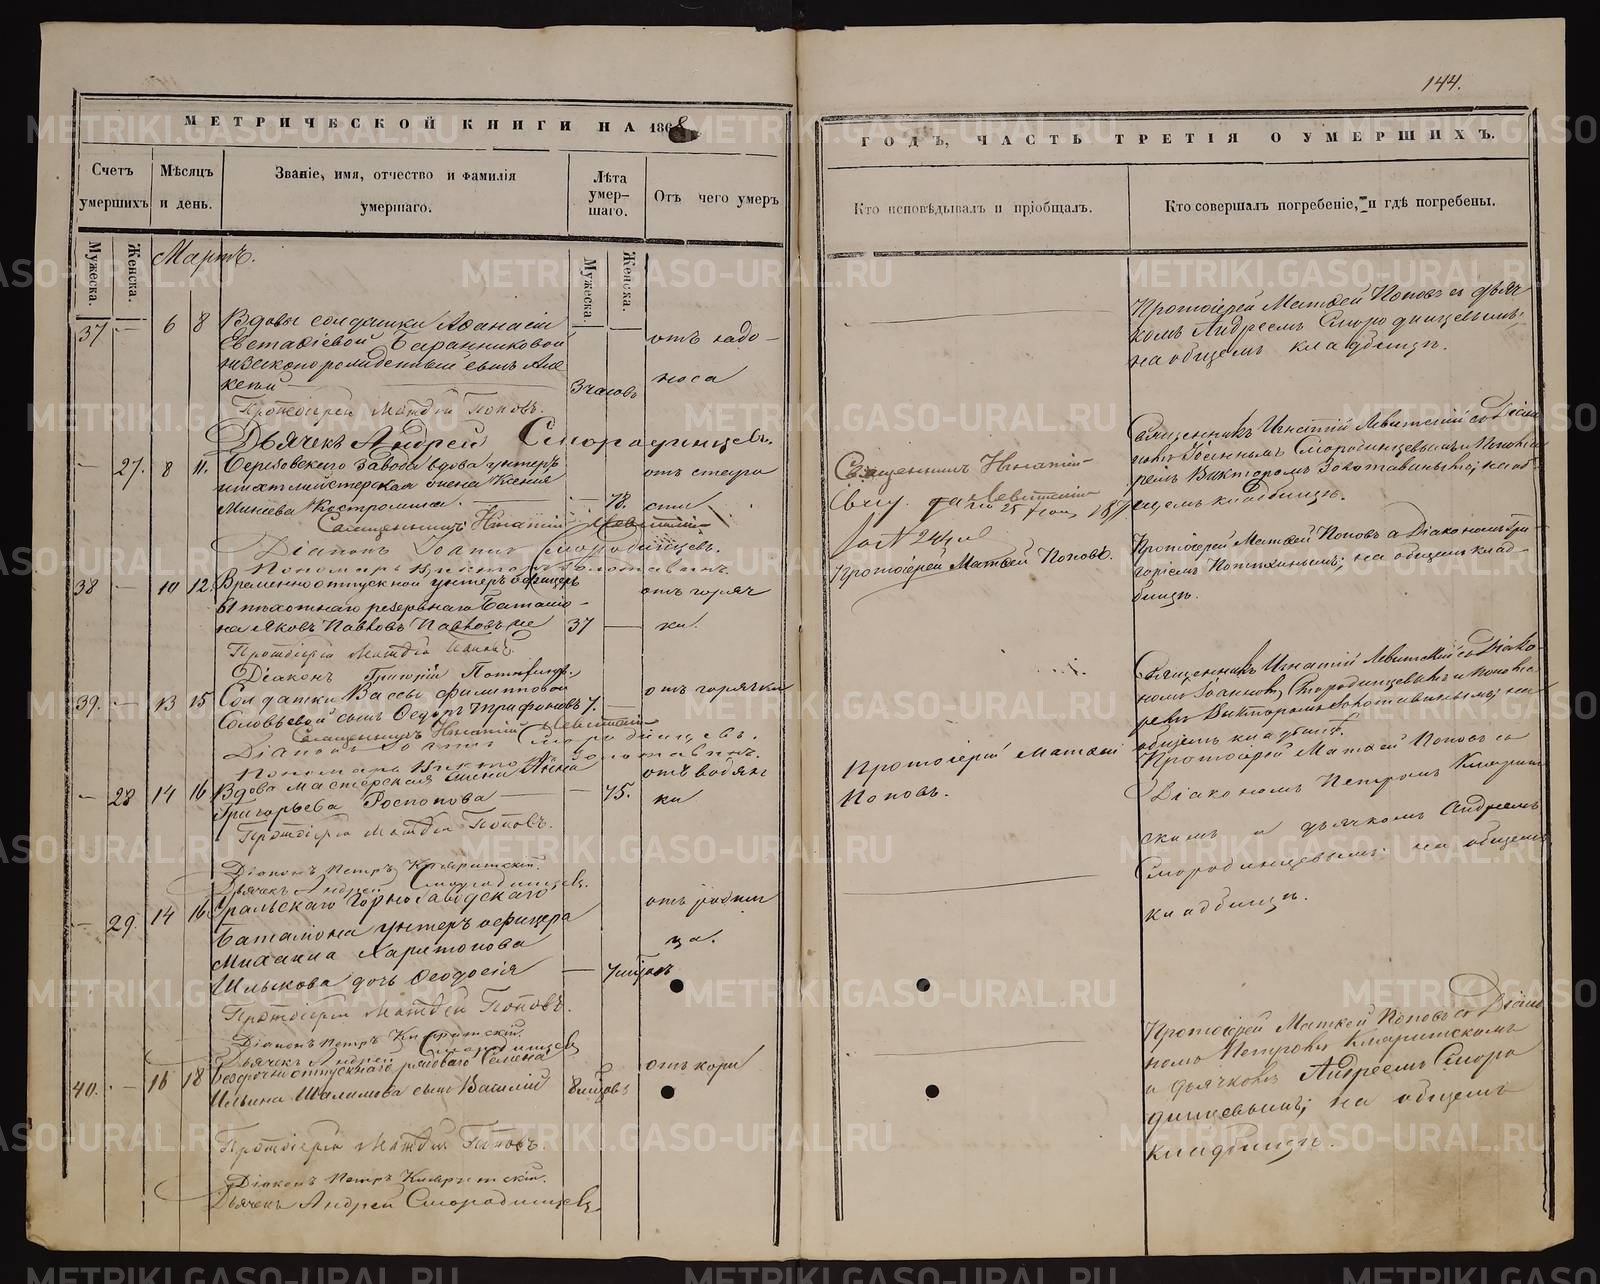 144.
МЕТРИЧЕСКОЙ КНИГИ НА 1868
ГОДЪ, ЧАСТЬ ТРЕТІЯ О УМЕРШИХЪ.
Счетъ умершихъ
Мѣсяцъ и день.
Званіе, имя, отчество и фамилія умершаго.
Лѣта умер-
шаго.
Отъ чего умеръ
Кто исповѣдывалъ и пріобщалъ.
Кто совершалъ погребеніе, и гдѣ погребены.
Мужеска.
Женска.
Мужеска.
Женска.
Мартъ.
37 — 6 8 Вдовы солдатки Афанасіи
Евстафіевой Баранниковой
незаконорожденный сынъ
3 часовъ
отъ надо-
носа
Протоіерей Матѳей Поповъ съ дьяч
комъ Андреемъ Смородинцевымъ,
на общемъ кладбищѣ.
Протоіерей Матѳей Поповъ.
Дьячекъ Андрей Смородинцевъ.
— 27. 8 11. Березовскаго завода вдова унтеръ
шихтмейстерская жена Ксенія
Минѣева Костромина.
— 78.
отъ старо
сти
Священникъ Игнатій
Левитскій
Священникъ Игнатій Левитскій съ Діако
номъ Іоанномъ Смородинцевымъ и Понома
ремъ Викторомъ Золотавинымъ; на об
щемъ кладбищѣ.
Священникъ Игнатій Левитскій
Діаконъ Іоаннъ Смородинцевъ.
Пономарь Викторъ Золотавинъ.
38 — 10 12. Временно отпускной унтеръ офицеръ
61 пѣхотнаго резервнаго Баталіо-
на Яковъ Павловъ
37 —
отъ горяч
ки.
Протоіерей Матѳей Поповъ.
Протоіерей Матѳей Поповъ съ Діакономъ Гри
горіемъ Потѣхинымъ; на общемъ клад-
бищѣ.
Протоіерей Матѳей Поповъ.
Діаконъ Григорій Потѣхинъ.
39. — 13 15 Солдатки Вассы Филипповой
Соловьевой сынъ Ѳедоръ Трифоновъ
7. —
отъ горячки
Священникъ Игнатій Левитскій съ Діако-
номъ Іоанномъ Смородинцевымъ и Понома
ремъ Викторомъ Золотавинымъ; на
общемъ кладбищѣ.
Священникъ Игнатій Левитскій
Діаконъ Іоаннъ Смородинцевъ.
Пономарь Викторъ Золотавинъ.
— 28 14 16 Вдова мастерская жена Анна
Григорьева Распопова
— 75.
отъ водян
ки
Протоіерей Матѳей
Поповъ.
Протоіерей Матѳей Поповъ съ
Діакономъ Петромъ
скимъ и дьячкомъ Андреемъ
Смородинцевымъ; на общемъ
кладбищѣ.
Протоіерей Матѳей Поповъ.
Діаконъ Петръ
Дьячекъ Андрей Смородинцевъ.
— 29. 14 16 Уральскаго Горнозаводскаго
Баталіона унтеръ офицера
Михаила Харитонова
Шлыкова дочь Ѳеодосія
—
отъ родим
ца.
Протоіерей Матѳей Поповъ.
Діаконъ Петръ
Дьячекъ Андрей Смородинцевъ
40. — 16 18 Безсрочно отпускнаго рядоваго Семена
Ильина Шалимова сынъ Василій
отъ кори
Протоіерей Матѳей Поповъ съ Діако
номъ Петромъ
и дьячкомъ Андреемъ Сморо
динцевымъ; на общемъ
кладбищѣ.
Протоіерей Матѳей Поповъ.
Діаконъ Петръ
Дьячекъ Андрей Смородинцевъ
METRIKI.GASO-URAL.RU